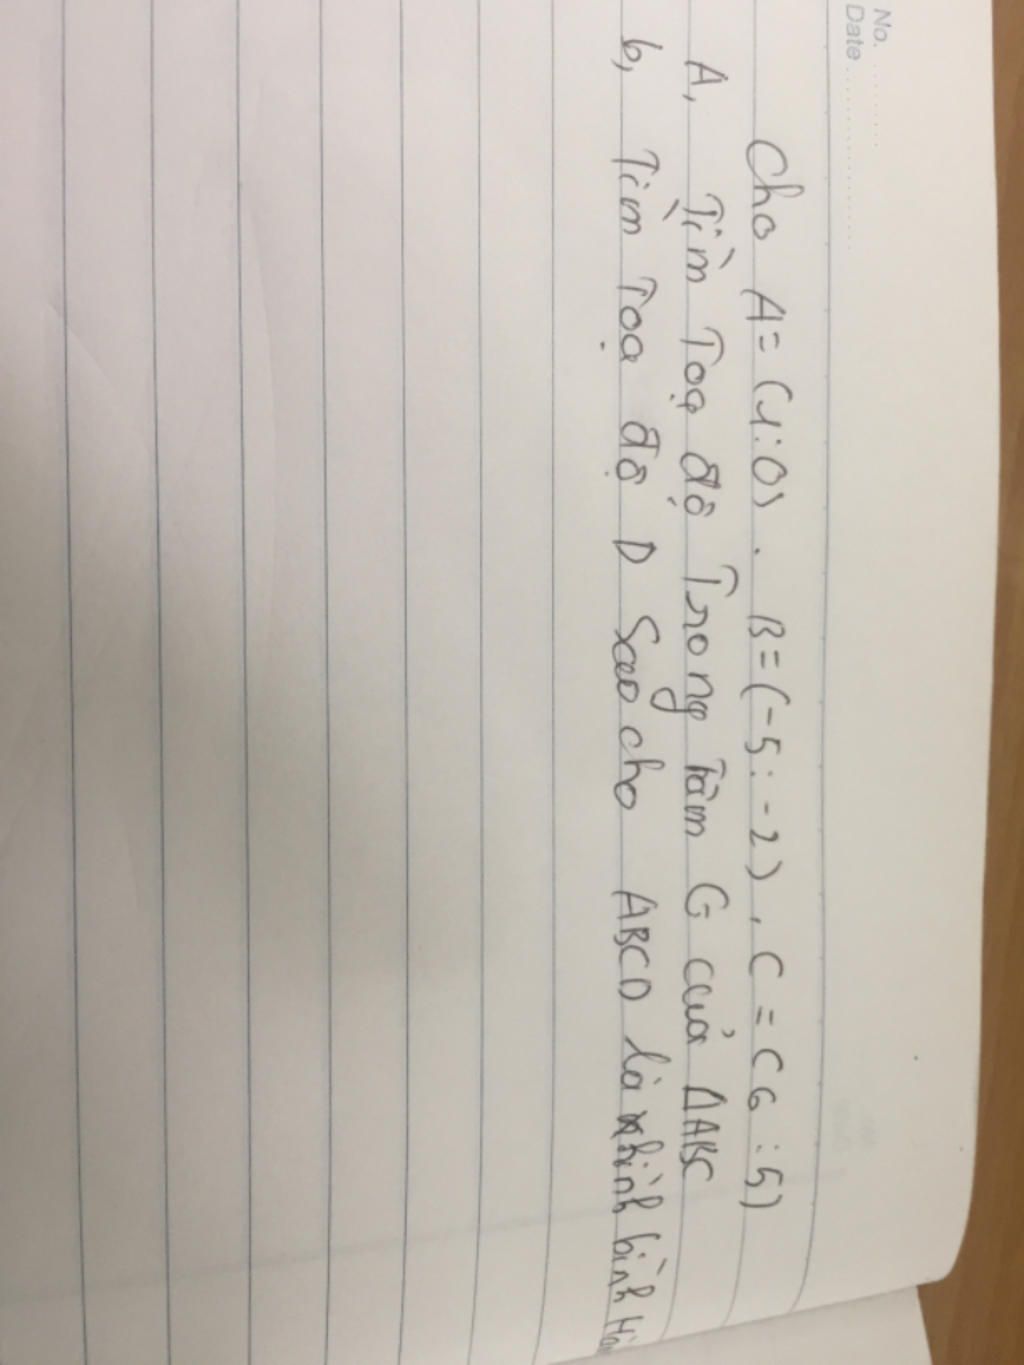 No.
Date
Cho A = (1:0). B = (-5: -2), C = (6 : 5)
A, Tìm Toạ độ Trong Tâm G của ΔABC
b, Tìm Toạ độ D Sao cho ABCD là hình bình Hàn